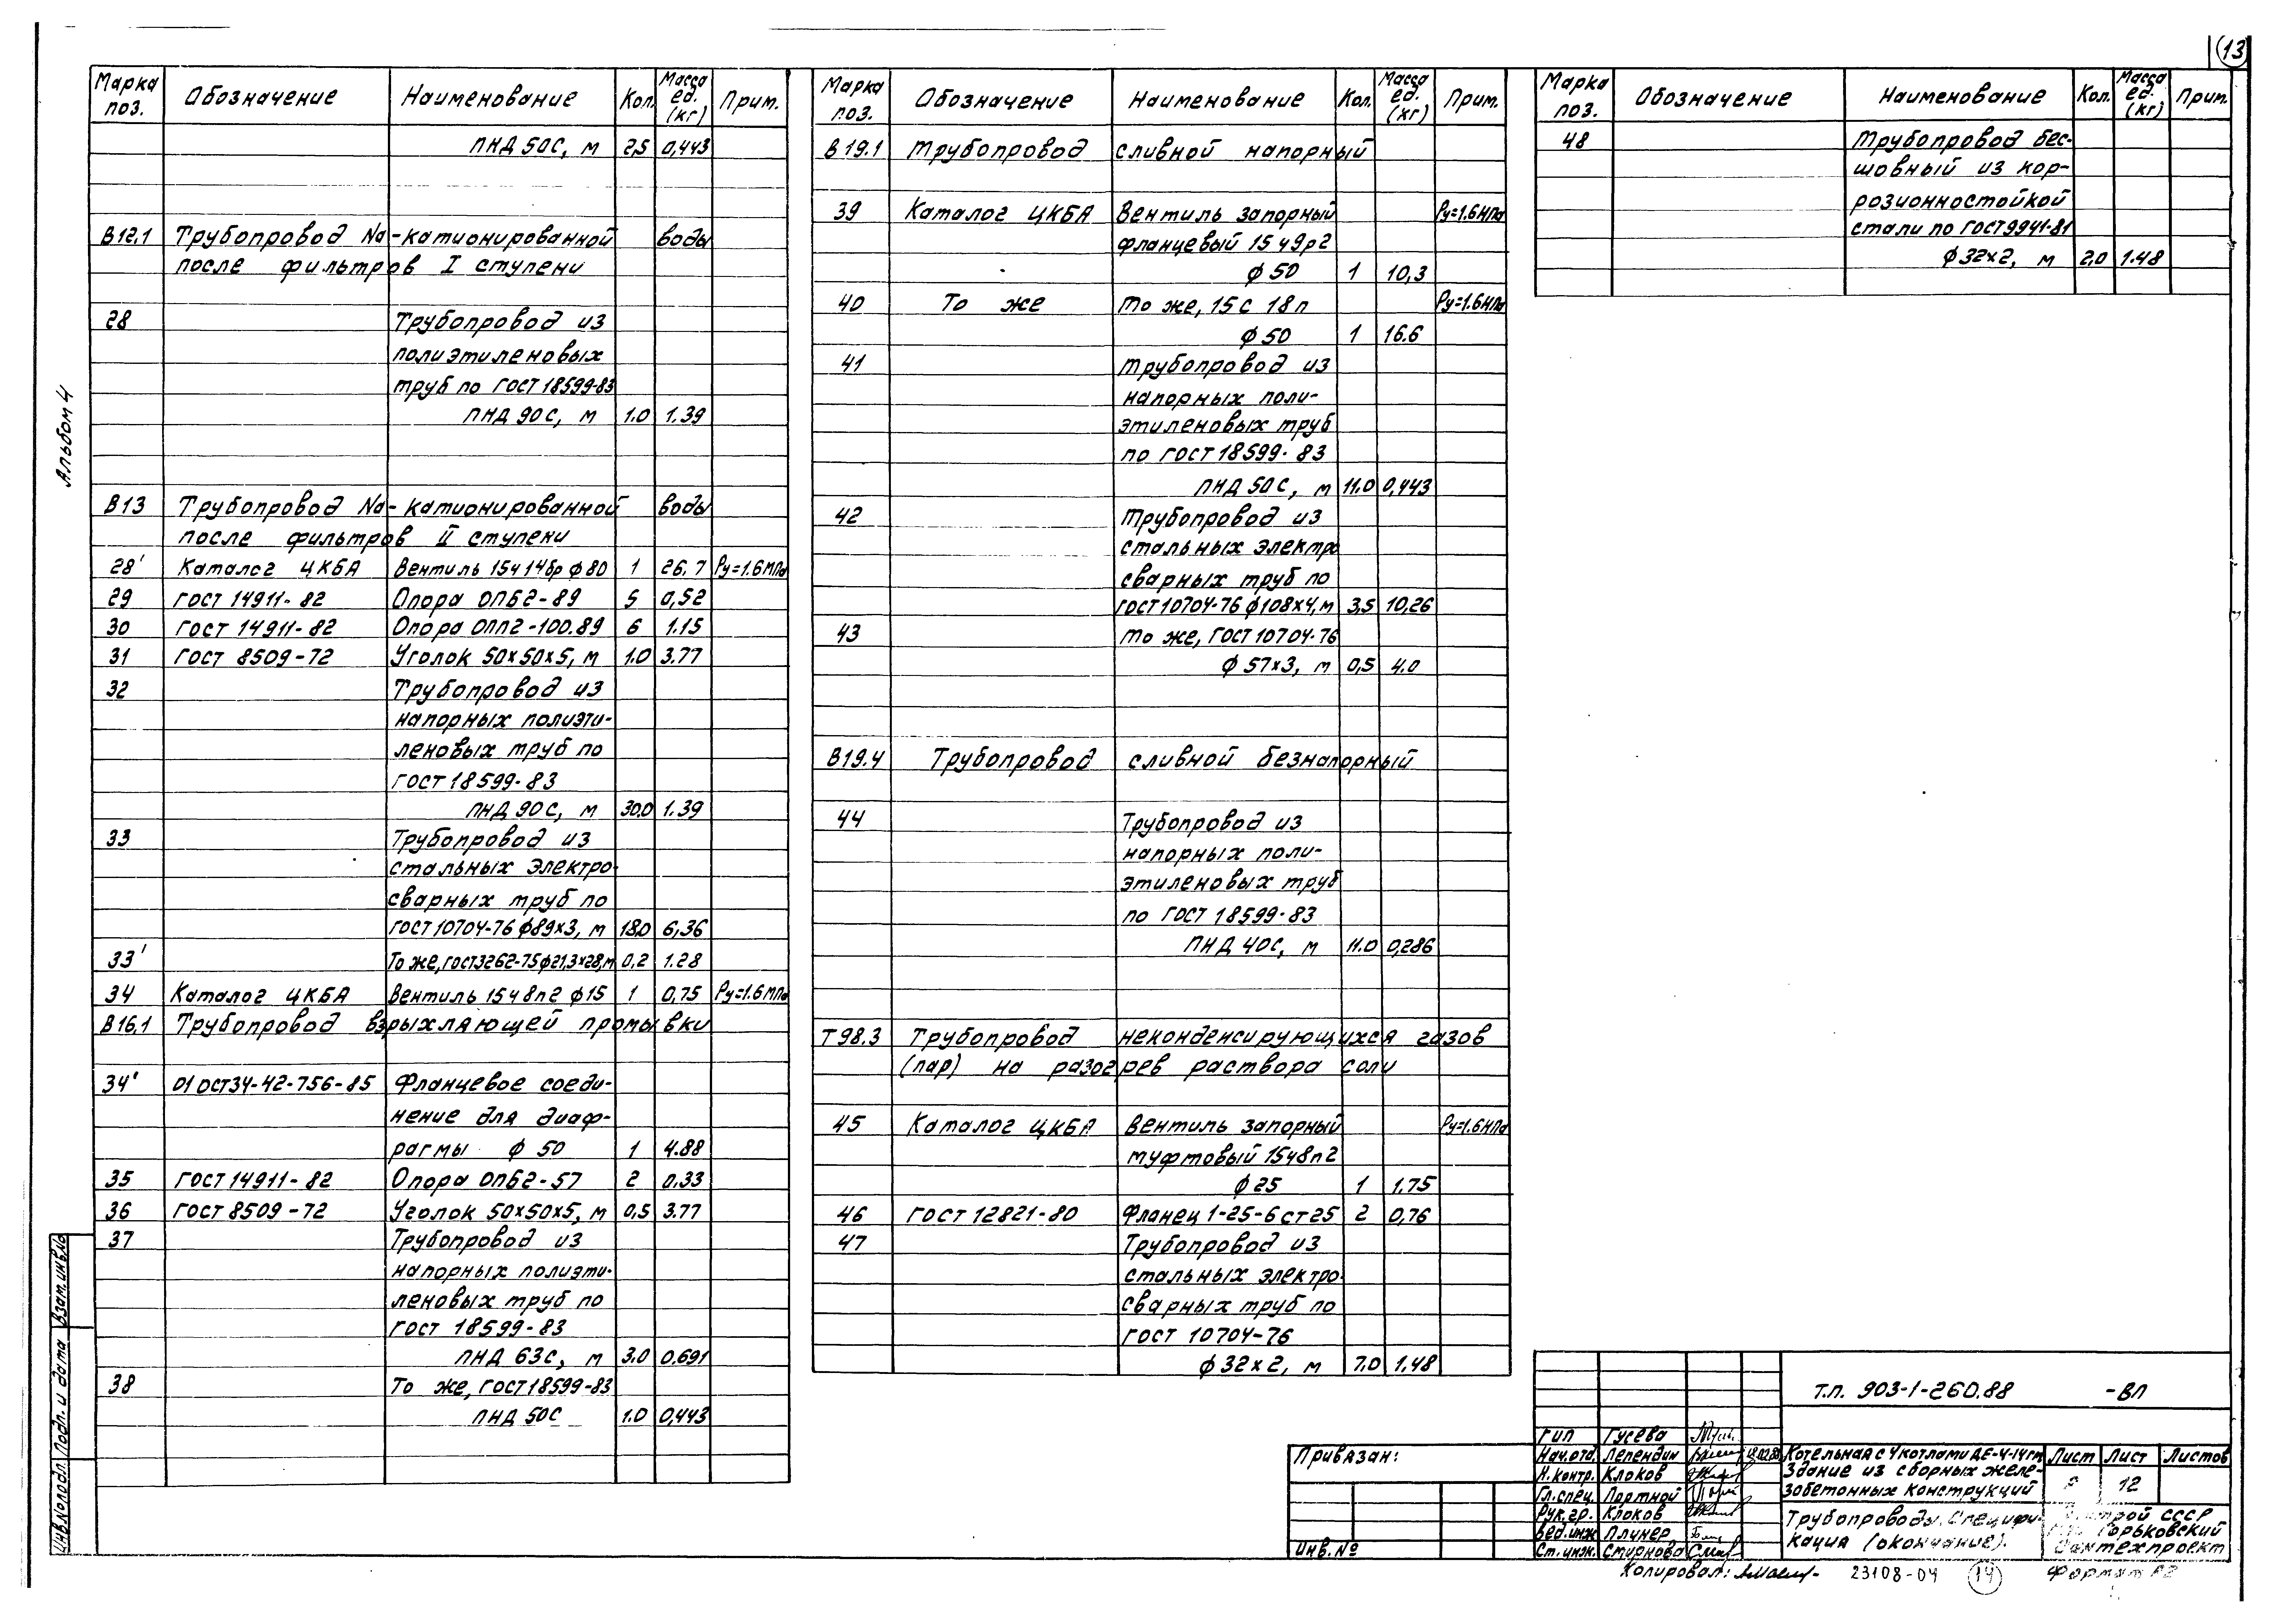 13
Альбом 4
Марка поз. Обозначение Наименование Кол. Масса ед. (кг) Прим.
ПНД 50С, м 2,5 0,443
В12.1 Трубопровод Na-катионированной воды
после фильтров I ступени
28 Трубопровод из
полиэтиленовых
труб по ГОСТ 18599-83
ПНД 90С, м 1.0 1.39
В13 Трубопровод Na-катионированной воды
после фильтров II ступени
28' Каталог ЦКБА Вентиль 15ч14бр ф80 1 26.7 Ру=1.6МПа
29 ГОСТ 14911-82 Опора ОПБ2-89 5 0,52
30 ГОСТ 14911-82 Опора ОПП2-100.89 6 1.15
31 ГОСТ 8509-72 Уголок 50х50х5, м 1.0 3.77
32 Трубопровод из
напорных полиэти-
леновых труб по
ГОСТ 18599-83
ПНД 90С, м 30.0 1.39
33 Трубопровод из
стальных электро-
сварных труб по
ГОСТ 10704-76 ф89х3, м 18.0 6,36
33' То же, ГОСТ3262-75 ф21,3х28, м 0,2 1.28
34 Каталог ЦКБА Вентиль 15ч8п2 ф15 1 0,75 Ру=1.6МПа
В16.1 Трубопровод взрыхляющей промывки
34' 01 ОСТ34-42-756-85 Фланцевое соеди-
нение для диаф-
рагмы ф 50 1 4.88
35 ГОСТ 14911-82 Опора ОПБ2-57 2 0.33
36 ГОСТ 8509-72 Уголок 50х50х5, м 0,5 3.77
37 Трубопровод из
напорных полиэти-
леновых труб по
ГОСТ 18599-83
ПНД 63С, м 3.0 0.691
38 То же, ГОСТ 18599-83
ПНД 50С 1.0 0,443
Марка поз. Обозначение Наименование Кол. Масса ед. (кг) Прим.
В19.1 Трубопровод сливной напорный
39 Каталог ЦКБА Вентиль запорный Ру=1.6МПа
фланцевый 15ч9р2
ф 50 1 10,3
40 То же То же, 15с 18п Ру=1.6МПа
ф 50 1 16.6
41 Трубопровод из
напорных поли-
этиленовых труб
по ГОСТ 18599-83
ПНД 50С, м 11.0 0,443
42 Трубопровод из
стальных электро
сварных труб по
ГОСТ 10704-76 ф108х4, м 3,5 10,26
43 То же, ГОСТ 10704-76
ф 57х3, м 0,5 4.0
В19.4 Трубопровод сливной безнапорный
44 Трубопровод из
напорных поли-
этиленовых труб
по ГОСТ 18599-83
ПНД 40С, м 11.0 0,286
Т98.3 Трубопровод неконденсирующихся газов
(пар) на разогрев раствора соли
45 Каталог ЦКБА Вентиль запорный Ру=1.6МПа
муфтовый 15ч8п2
ф 25 1 1.75
46 ГОСТ 12821-80 Фланец 1-25-6 ст25 2 0,76
47 Трубопровод из
стальных электро-
сварных труб по
ГОСТ 10704-76
ф 32х2, м 7.0 1,48
Марка поз. Обозначение Наименование Кол. Масса ед. (кг) Прим.
48 Трубопровод бес-
шовный из кор-
розионностойкой
стали по ГОСТ 9941-81
ф 32х2, м 2,0 1.48
Инв.№подл. Подп. и дата Взам.инв.№
Привязан:
Инв.№
Т.П. 903-1-260.88 -ВП
ГИП Гусева
Нач.отд. Лепендин
Н.контр. Клоков
Гл.спец. Портной
Рук.гр. Клоков
Вед.инж Плинер
Ст.инж. Смирнова
Котельная с 4 котлами ДЕ-4-14гм
Здание из сборных желе-
зобетонных конструкций
Лист Лист Листов
Р 12
Трубопроводы. Специфи-
кация (окончание).
строй СССР
Горьковский
Сантехпроект
Копировал: 23108-04 14 Формат А2